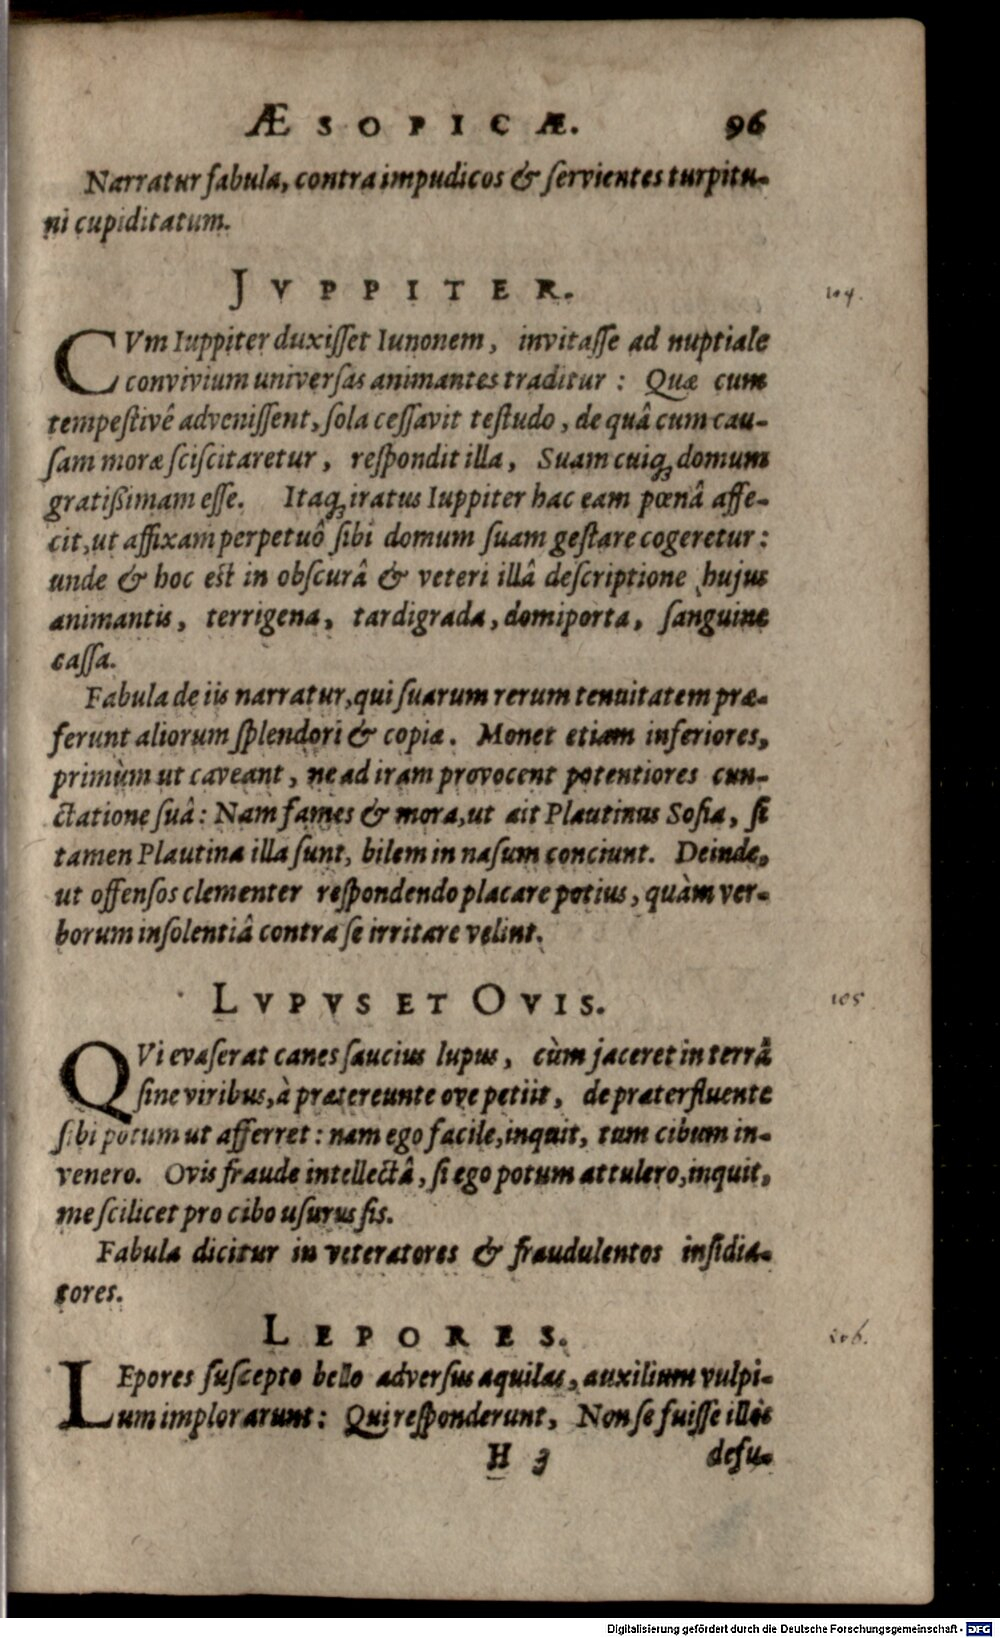 ÆSOPICÆ. 96
Narratur fabula, contra impudicos & servientes turpitu-
ni cupiditatum.
JVPPITER.
104.
CVm Iuppiter duxiſſet Iunonem, invitaſſe ad nuptiale
convivium univerſas animantes traditur: Quæ cum
tempeſtivê adveniſſent, ſola ceſſavit teſtudo, de quâ cum cau-
ſam moræ ſciſcitaretur, reſpondit illa, Suam cuiq; domum
gratißimam eſſe. Itaq; iratus Iuppiter hac eam pœnâ affe-
cit, ut affixam perpetuô ſibi domum ſuam geſtare cogeretur:
unde & hoc eſt in obſcurâ & veteri illâ deſcriptione hujus
animantis, terrigena, tardigrada, domiporta, ſanguine
caſſa.
Fabula de iis narratur, qui ſuarum rerum tenuitatem præ-
ferunt aliorum ſplendori & copiæ. Monet etiam inferiores,
primùm ut caveant, ne ad iram provocent potentiores cun-
ctatione ſuâ: Nam fames & mora, ut ait Plautinus Soſia, ſi
tamen Plautina illa ſunt, bilem in naſum conciunt. Deinde,
ut offenſos clementer reſpondendo placare potius, quàm ver-
borum inſolentiâ contra ſe irritare velint.
LVPVS ET OVIS.
105
QVi evaſerat canes ſaucius lupus, cùm jaceret in terrâ
ſine viribus, à prætereunte ove petiit, de præterfluente
ſibi potum ut afferret: nam ego facile, inquit, tum cibum in-
venero. Ovis fraude intellectâ, ſi ego potum attulero, inquit,
me ſcilicet pro cibo uſurus ſis.
Fabula dicitur in veteratores & fraudulentos inſidia-
tores.
LEPORES.
106.
LEpores ſuſcepto bello adverſus aquilas, auxilium vulpi-
um implorarunt: Qui reſponderunt, Non ſe fuiſſe illis
H 3 deſu-
Digitalisierung gefördert durch die Deutsche Forschungsgemeinschaft - DFG